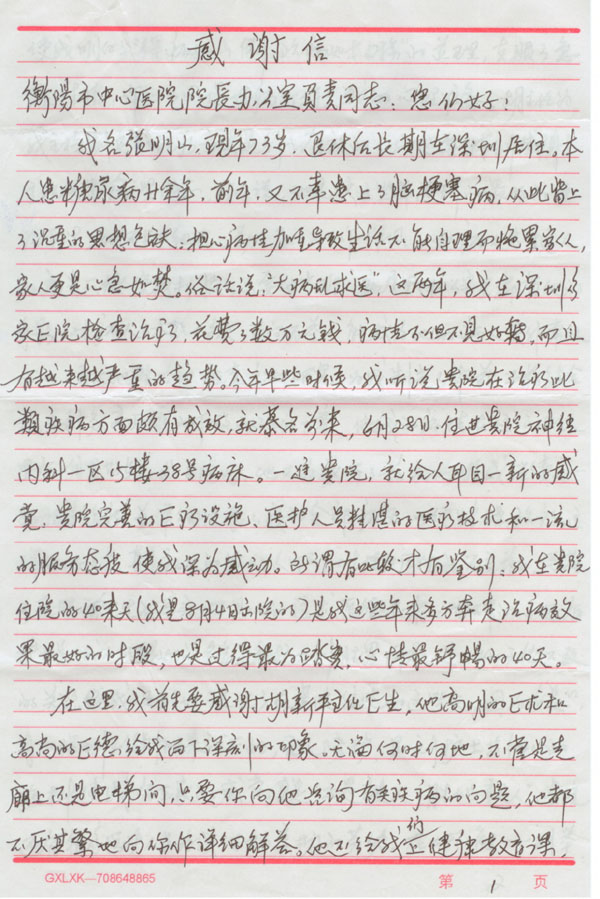 感谢信
衡陽市中心医院院長办公室負责同志：您们好！
我名張明山，现年73岁，退休后长期在深圳居住。本
人患糖尿病廿余年，前年，又不幸患上了脑梗塞病，从此背上
了沉重的思想包袱，担心病情加重导致生活不能自理而拖累家人，
家人更是心急如焚。俗话说："大病乱求医"，这两年，我在深圳多
家医院检查治疗，花费了数万元钱，病情不但不見好轉，而且
有越来越严重的趋势。今年早些时候，我听说貴院在治疗此
類疾病方面颇有成效，就慕名前来，6月28日住进貴院神经
内科一区15楼38号病床。一進貴院，就给人耳目一新的感
覚，貴院完善的医疗设施、医护人员精湛的医疗技术和一流
的服务态度使我深为感动。所谓有比较才有鉴别，我在貴院
住院的40来天（我是8月4日出院的）是我这些年来多方奔走治病效
果最好的时段，也是过得最为踏实、心情最舒暢的40天。
在这里，我首先要感谢胡新平主任医生，他高明的医术和
高尚的医德给我留下深刻的印象。无論何时何地，不管是走
廊上还是电梯间，只要你向他咨询有关疾病的问题，他都
不厌其繁地向你作详细解答。他还给我们上健康教育课，
GXLXK—708648865
第 1 页